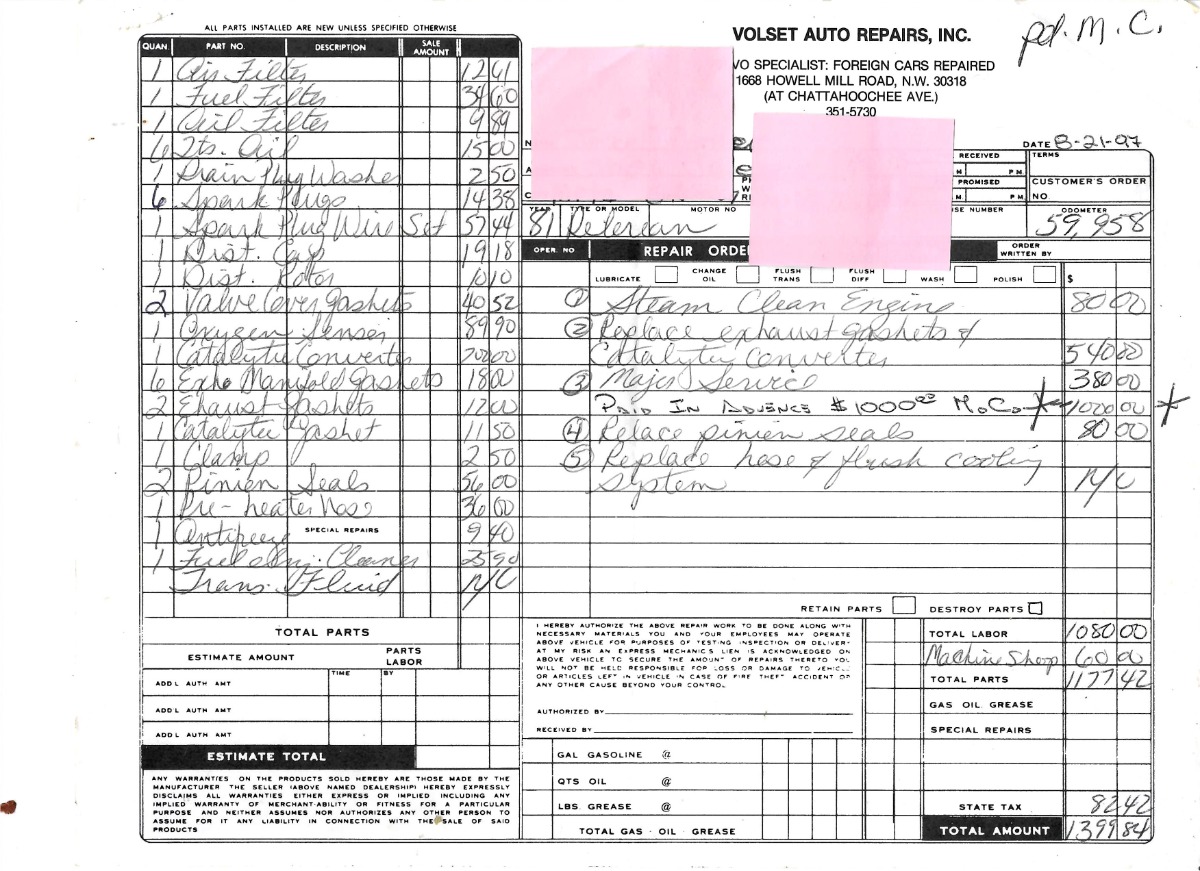 ALL PARTS INSTALLED ARE NEW UNLESS SPECIFIED OTHERWISE
VOLSET AUTO REPAIRS, INC.
pd. M. C.
VO SPECIALIST: FOREIGN CARS REPAIRED
1668 HOWELL MILL ROAD, N.W. 30318
(AT CHATTAHOOCHEE AVE.)
351-5730
DATE 8-21-97
QUAN. PART NO. DESCRIPTION SALE AMOUNT
1 Air Filter 12 61
1 Fuel Filter 34 60
1 Oil Filter 9 89
6 Qts. Oil 15 00
1 Drain Plug Washer 2 50
6 Spark Plugs 14 38
1 Spark Plug Wire Set 57 44
1 Dist. Cap 19 18
1 Dist. Rotor 10 10
2 Valve Cover Gaskets 40 52
1 Oxygen Sensor 89 90
1 Catalytic Converter 700 00
6 Exh. Manifold Gaskets 18 00
2 Exhaust Gaskets 12 00
1 Catalytic Gasket 11 50
1 Clamp 2 50
2 Pinien Seals 56 00
1 Pre-heater Hose 36 00
1 Antifreeze SPECIAL REPAIRS 9 40
1 Fuel Inj. Cleaner 25 90
Trans. Fluid N/C
TOTAL PARTS
ESTIMATE AMOUNT PARTS LABOR
TIME BY
ADD'L AUTH AMT
ADD'L AUTH AMT
ADD'L AUTH AMT
ESTIMATE TOTAL
ANY WARRANTIES ON THE PRODUCTS SOLD HEREBY ARE THOSE MADE BY THE
MANUFACTURER THE SELLER (ABOVE NAMED DEALERSHIP) HEREBY EXPRESSLY
DISCLAIMS ALL WARRANTIES EITHER EXPRESS OR IMPLIED INCLUDING ANY
IMPLIED WARRANTY OF MERCHANT-ABILITY OR FITNESS FOR A PARTICULAR
PURPOSE AND NEITHER ASSUMES NOR AUTHORIZES ANY OTHER PERSON TO
ASSUME FOR IT ANY LIABILITY IN CONNECTION WITH THE SALE OF SAID
PRODUCTS
RECEIVED M PM TERMS
PROMISED M PM CUSTOMER'S ORDER NO
YEAR TYPE OR MODEL MOTOR NO SE NUMBER ODOMETER
81 59,958
OPER. NO REPAIR ORDE ORDER WRITTEN BY
LUBRICATE CHANGE OIL FLUSH TRANS FLUSH DIFF WASH POLISH $
1 Steam Clean Engine 80 00
2 Replace exhaust gaskets &
Catalytic converter 540 00
3 Major Service 380 00
PAID IN ADVENCE $1000 00 M.C. * 1000 00 *
4 Relace pinien seals 80 00
5 Replace hose & flush cooling
system N/C
RETAIN PARTS DESTROY PARTS
I HEREBY AUTHORIZE THE ABOVE REPAIR WORK TO BE DONE ALONG WITH
NECESSARY MATERIALS YOU AND YOUR EMPLOYEES MAY OPERATE
ABOVE VEHICLE FOR PURPOSES OF TESTING INSPECTION OR DELIVER-
AT MY RISK AN EXPRESS MECHANICS LIEN IS ACKNOWLEDGED ON
ABOVE VEHICLE TO SECURE THE AMOUNT OF REPAIRS THERETO YOU
WILL NOT BE HELD RESPONSIBLE FOR LOSS OR DAMAGE TO VEHICL
OR ARTICLES LEFT IN VEHICLE IN CASE OF FIRE THEFT ACCIDENT OR
ANY OTHER CAUSE BEYOND YOUR CONTROL
AUTHORIZED BY
RECEIVED BY
GAL GASOLINE @
QTS OIL @
LBS. GREASE @
TOTAL GAS - OIL - GREASE
TOTAL LABOR 1080 00
Machine Shop 60 00
TOTAL PARTS 1177 42
GAS OIL GREASE
SPECIAL REPAIRS
STATE TAX 82 42
TOTAL AMOUNT 1399 84